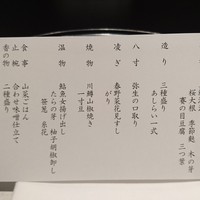 桜大根 季節麩 木の芽
蕎の目豆腐 三つ葉
造り 三種盛り
あしらい一式
八寸 弥生の口取り
凌ぎ 春野菜花見すし
がり
焼物 川鱒山椒焼き
一寸豆
温物 鮎魚女揚げ出し
たらの芽 柚子胡椒卸し
笹葱 糸花
食事 山菜ごはん
止椀 合わせ味噌仕立て
香の物 二種盛り